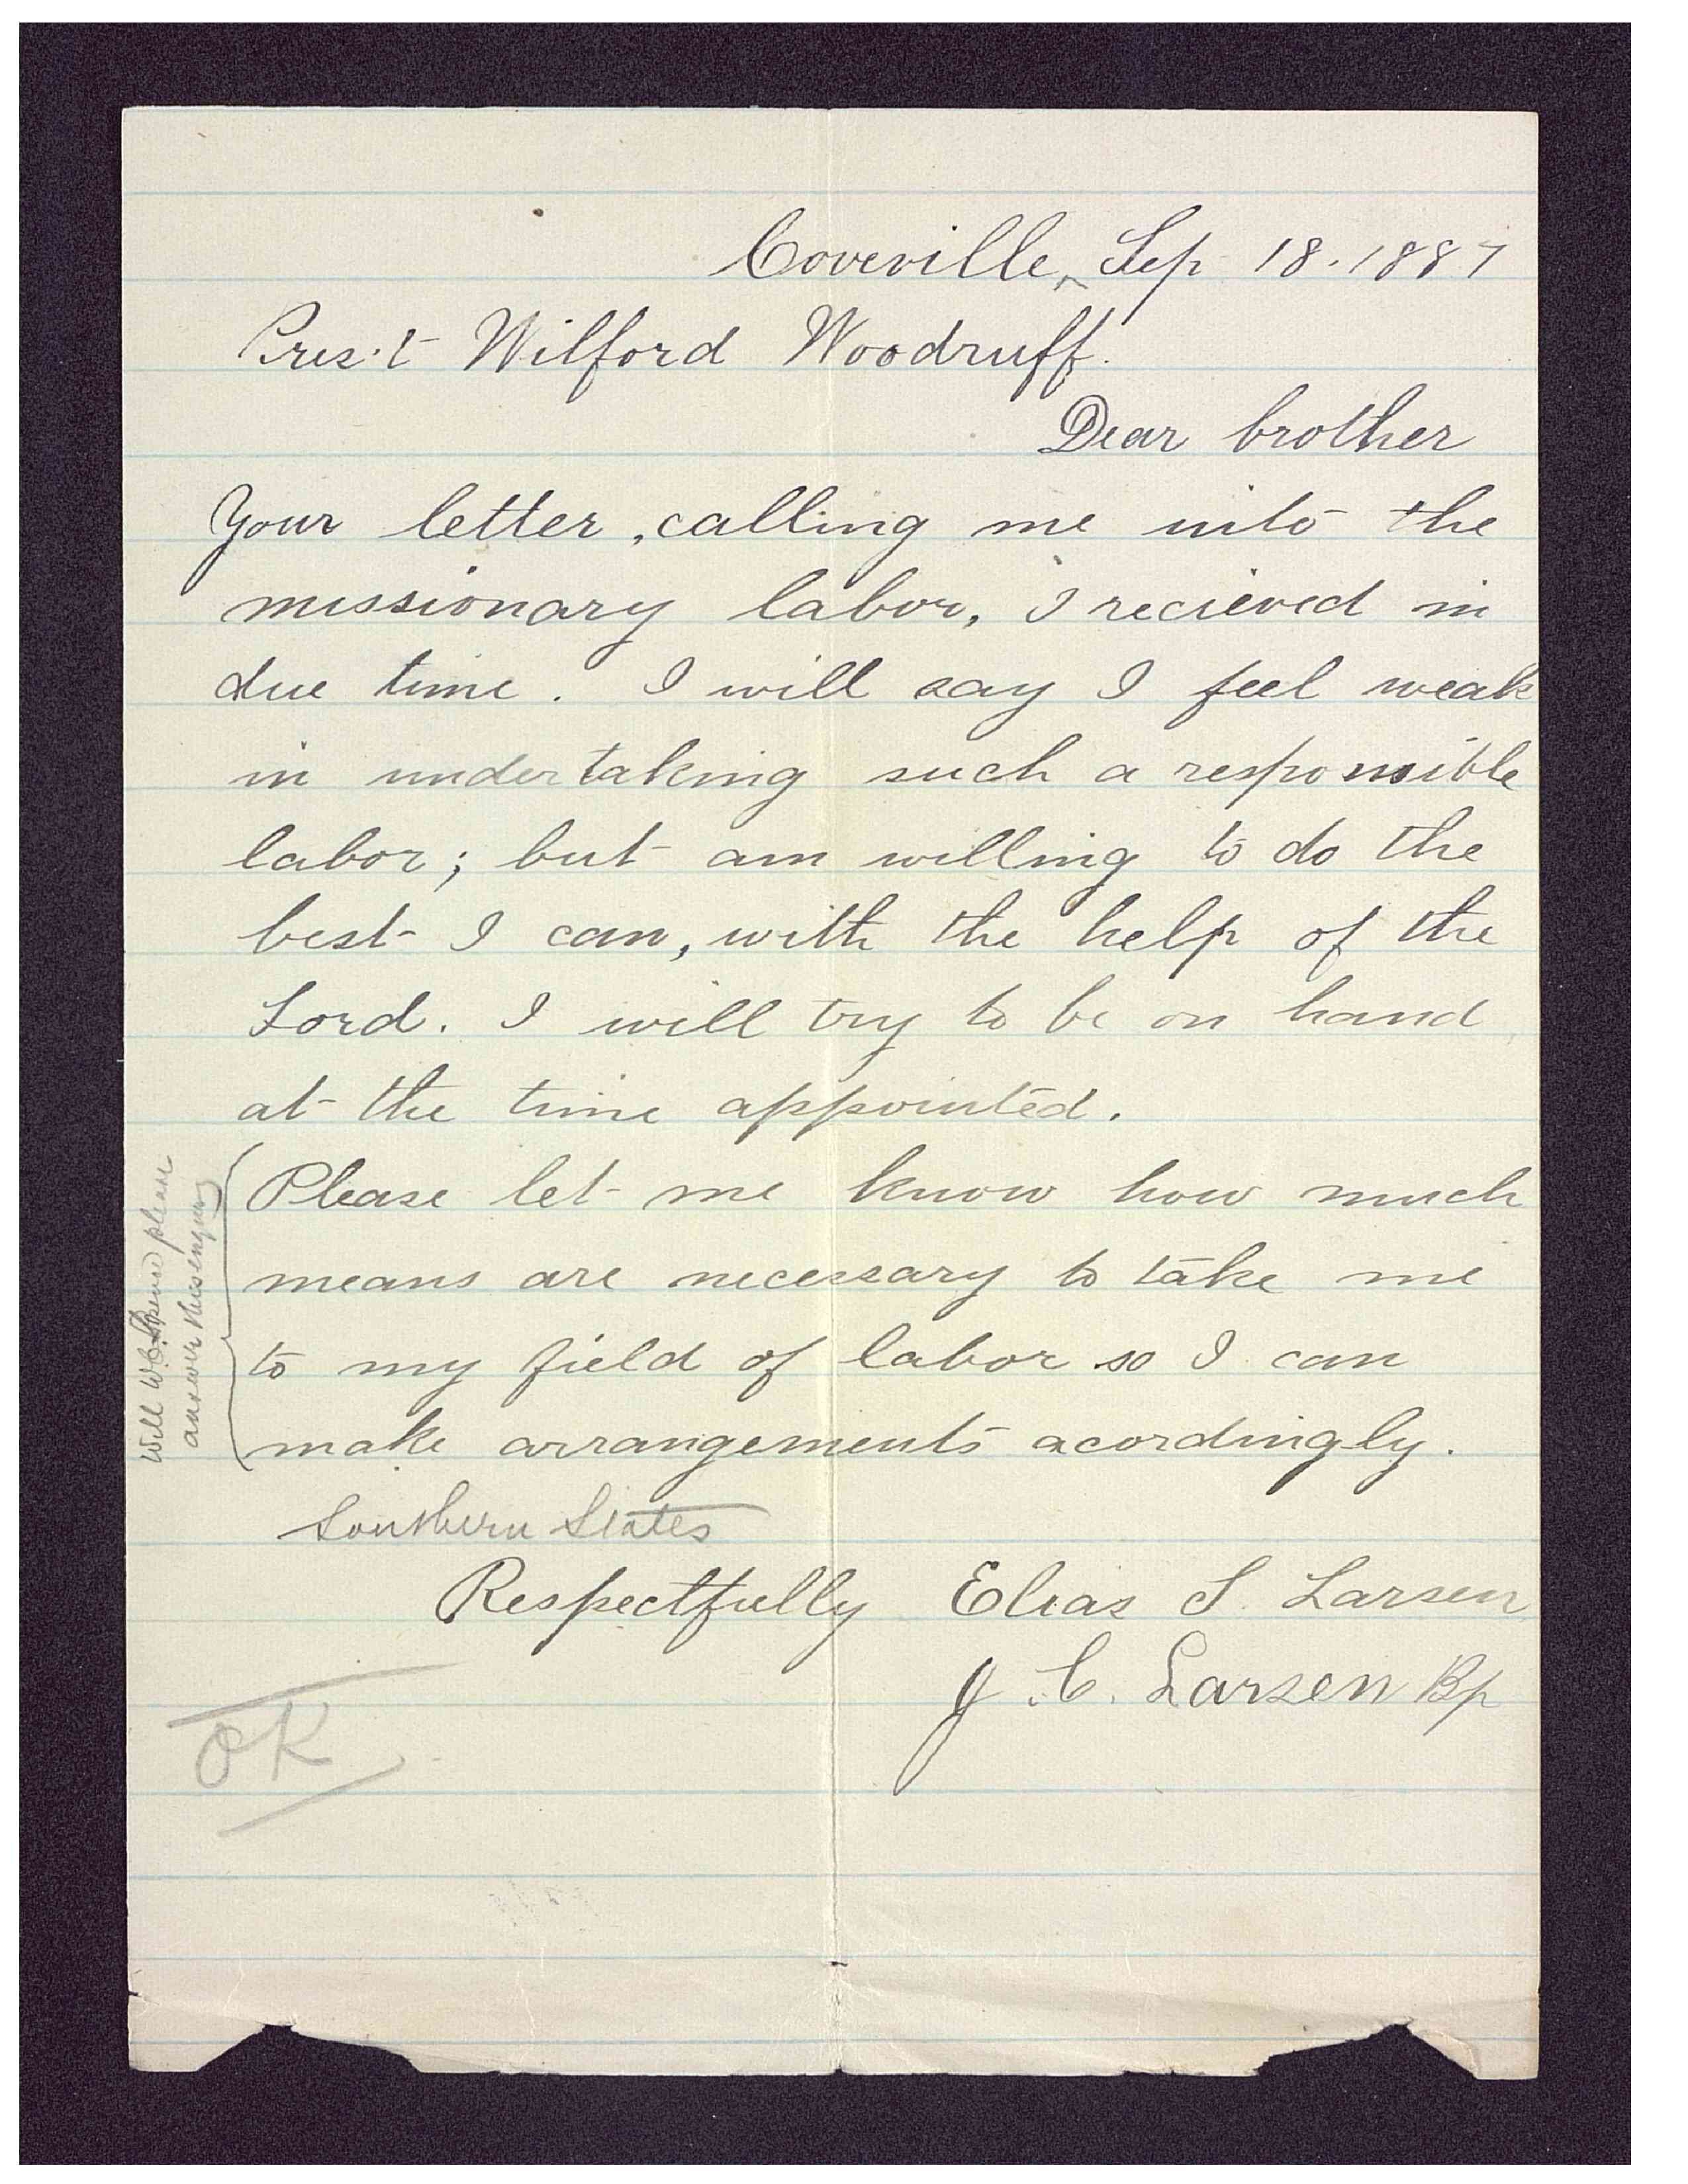 Coveville, Sep 18. 1887
Pres't Wilford Woodruff.
Dear brother
Your letter, calling me into the
missionary labor, I recieved in
due time. I will say I feel weak
in undertaking such a responsible
labor; but am willing to do the
best I can, with the help of the
Lord. I will try to be on hand
at the time appointed.
Please let me know how much
means are necessary to take me
to my field of labor so I can
make arrangements acordingly.
Will W.C. Spence please
answer this enquiry
Southern States
Respectfully Elias S. Larsen
J. C. Larsen Bp
OK